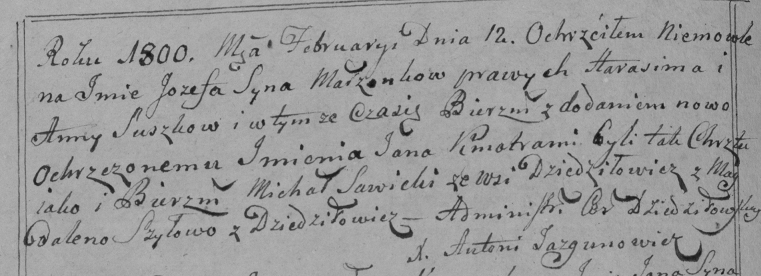 Roku 1800. Mca Februaryi Dnia 12. Ochrzciłem Niemowle
na Imie Jozefa Syna Małzonkow prawych Harasima i
Anny Suszkow i w tym ze Czasie Bierzm z dodaniem nowo
Ochrzczonemu Imienia Jana Kmotrami byli tak Chrztu
iako i Bierzm Michał Sawicki ze wsi Dziedziłowicz z Mag
daleno Szyłowo z Dziedziłowicz — Administr. Cer Dziedziłowskey
X. Antoni Jazgunowicz
Jana Syna